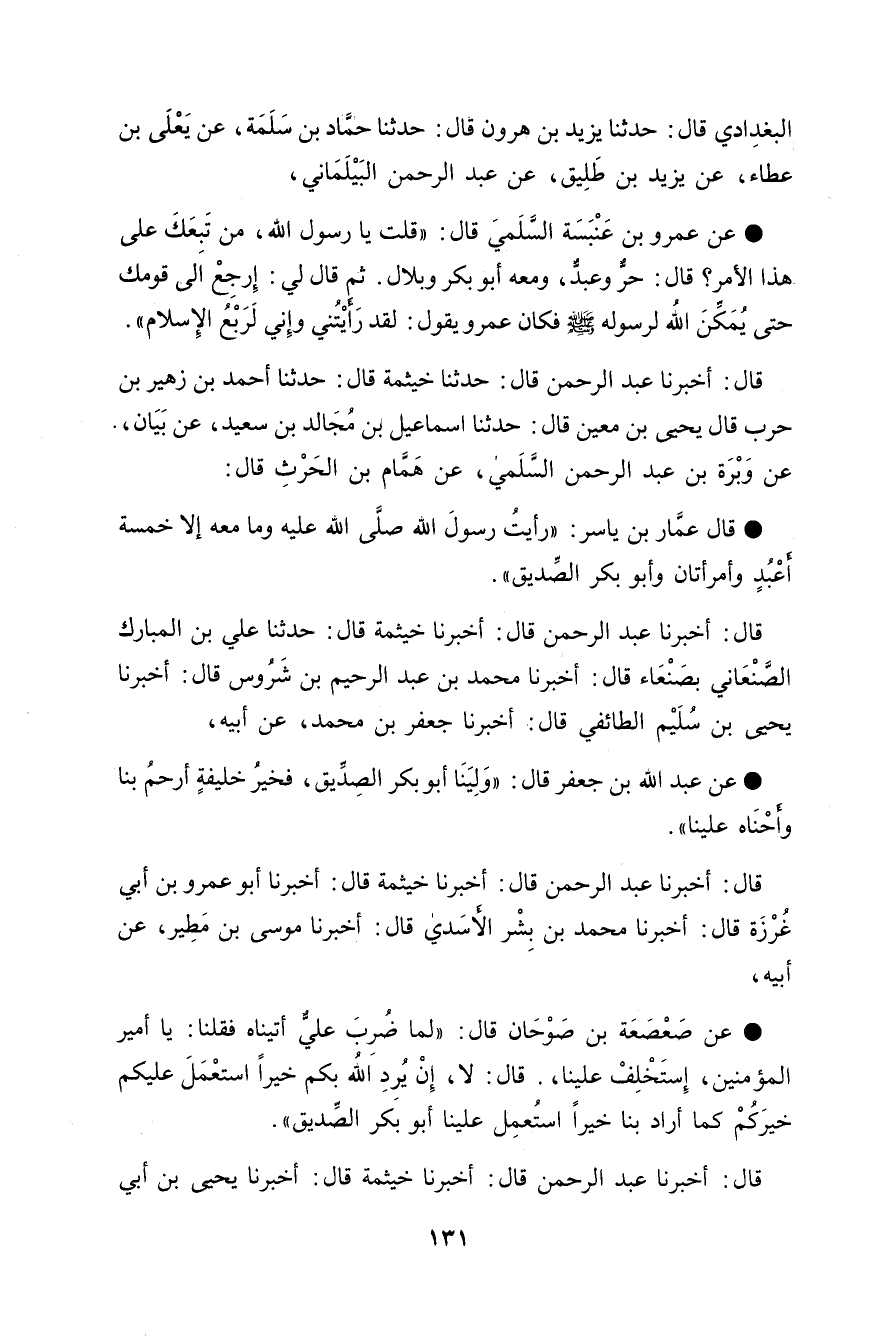 البغدادي قال: حدثنا يزيد بن هرون قال: حدثنا حمَّاد بن سَلَمَة، عن يَعْلَى بن
عطاء، عن يزيد بن طَلِيق، عن عبد الرحمن البَيْلَمَاني،
● عن عمرو بن عَنْبَسَة السَّلَميَ قال: «قلت يا رسول الله، من تَبِعَكَ على
هذا الأمر؟ قال: حرٌّ وعبدٌّ، ومعه أبو بكر وبلال. ثم قال لي: إرجِعْ الى قومك
حتى يُمَكِّنَ اللهُ لرسوله ﷺ فكان عمرو يقول: لقد رَأَيْتُني وإني لَرَبْعُ الإسلام».
قال: أخبرنا عبد الرحمن قال: حدثنا خيثمة قال: حدثنا أحمد بن زهير بن
حرب قال يحيى بن معين قال: حدثنا اسماعيل بن مُجَالد بن سعيد، عن بَيَان،.
عن وَبْرَة بن عبد الرحمن السَّلَميٰ، عن هَمَّام بن الحَرْثِ قال:
● قال عمَّار بن ياسر: «رأيتُ رسولَ الله صلَّى الله عليه وما معه إلا خمسة
أَعْبُدٍ وأمرأتان وأبو بكر الصِّديق».
قال: أخبرنا عبد الرحمن قال: أخبرنا خيثمة قال: حدثنا علي بن المبارك
الصَّنْعَاني بصَنْعَاء قال: أخبرنا محمد بن عبد الرحيم بن شَرُوس قال: أخبرنا
يحيى بن سُلَيْم الطائفي قال: أخبرنا جعفر بن محمد، عن أبيه،
● عن عبد الله بن جعفر قال: «وَلِيَنَا أبو بكر الصِدِّيق، فخيرُ خليفةٍ أرحمُ بنا
وأَحْنَاه علينا».
قال: أخبرنا عبد الرحمن قال: أخبرنا خيثمة قال: أخبرنا أبو عمرو بن أبي
غُرْزَة قال: أخبرنا محمد بن بِشْر الأَسَديٰ قال: أخبرنا موسى بن مَطِير، عن
أبيه،
● عن صَعْصَعَة بن صَوْحَان قال: «لما ضُرِبَ عليٌّ أتيناه فقلنا: يا أمير
المؤمنين، إستَخْلِفْ علينا،. قال: لا، إنْ يُرِدِ اللهُ بكم خيراً استعْمَلَ عليكم
خيرَكُمْ كما أراد بنا خيراً استُعمِل علينا أبو بَكر الصِّديق».
قال: أخبرنا عبد الرحمن قال: أخبرنا خيثمة قال: أخبرنا يحيى بن أبي
١٣١